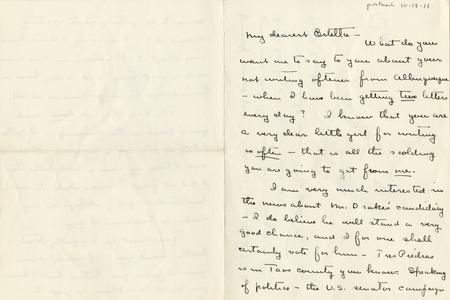 postmark 10-18-11.
My dearest Estella —
What do you
want me to say to you about your
not writing oftener from Albuquerque
– when I have been getting two letters
every day? I know that you are
a very dear little girl for writing
so often – that is all the scolding
you are going to get from me.
I am very much interested in
the news about Mr. Drake's candidacy
– I do believe he will stand a very
good chance, and I for one shall
certainly vote for him – Tres Piedras
is in Taos county you know. Speaking
of politics – the U.S. senator campaign